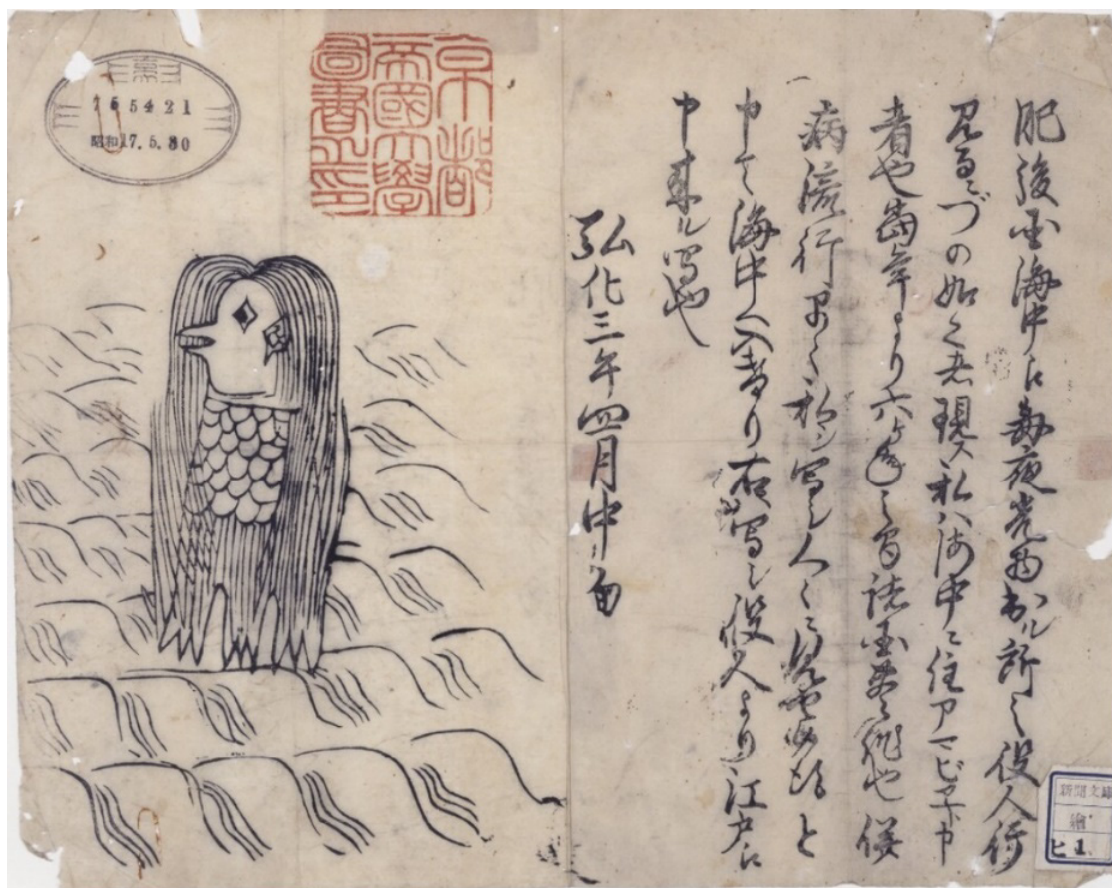 肥後国海中江毎夜光物出ル所之役人行
見るニづの如く者現ス私ハ海中ニ住アマビヱト申
者也當年より六ヶ年之間諸国豊作也併
病流行早々私シ写シ人々ニ見セ候得と
申て海中へ入けり右写シ役人より江戸江
申来ル写也
弘化三年四月中旬
京都
帝國大學
圖書之印
昭和17.5.30
新聞文庫
繪
ヒ1.